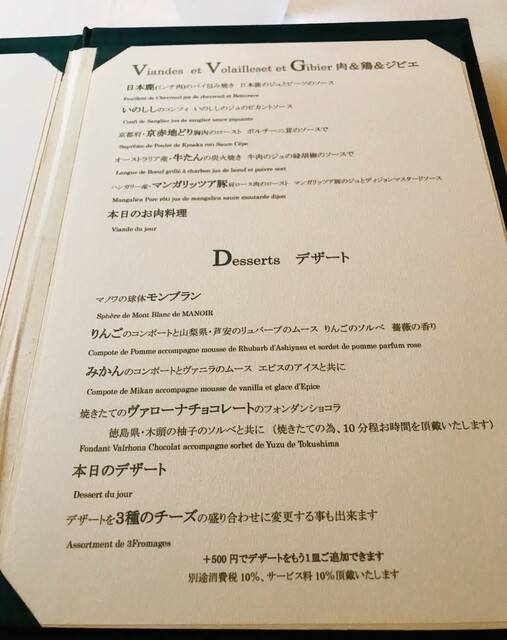 Viandes et Volailleset et Gibier 肉＆鶏＆ジビエ
日本鹿(ミンチ肉)のパイ包み焼き 日本鹿のジュとビーツのソース
Feuilleté de Chevreuil jus de chevreuil et Betterave
いのししのコンフィ いのししのジュのピカントソース
Confi de Sanglier jus de sanglier sauce piquante
京都府・京赤地どり胸肉のロースト ポルチーニ茸のソースで
Suprême de Poulet de Kyouka roti Sauce Cêpe
オーストラリア産・牛たんの炭火焼き 牛肉のジュの緑胡椒のソースで
Langue de Bœuf grillé à charbon jus de bœuf et poivre vert
ハンガリー産・マンガリッツア豚肩ロース肉のロースト マンガリッツア豚のジュとディジョンマスタードソース
Mangalica Porc rôti jus de mangalica sauce moutarde dijon
本日のお肉料理
Viande du jour
Desserts デザート
マノワの球体モンブラン
Sphère de Mont Blanc de MANOIR
りんごのコンポートと山梨県・芦安のリュバーブのムース りんごのソルベ 薔薇の香り
Compote de Pomme accompagne mousse de Rhubarb d'Ashiyasu et sordet de pomme parfum rose
みかんのコンポートとヴァニラのムース エピスのアイスと共に
Compote de Mikan accompagne mousse de vanilla et glace d'Epice
焼きたてのヴァローナチョコレートのフォンダンショコラ
徳島県・木頭の柚子のソルベと共に (焼きたての為、10分程お時間を頂戴いたします)
Fondant Valrhona Chocolat accompagne sorbet de Yuzu de Tokushima
本日のデザート
Dessert du jour
デザートを3種のチーズの盛り合わせに変更する事も出来ます
Assortment de 3Fromages
＋500円でデザートをもう1皿ご追加できます
別途消費税10%、サービス料10%頂戴いたします